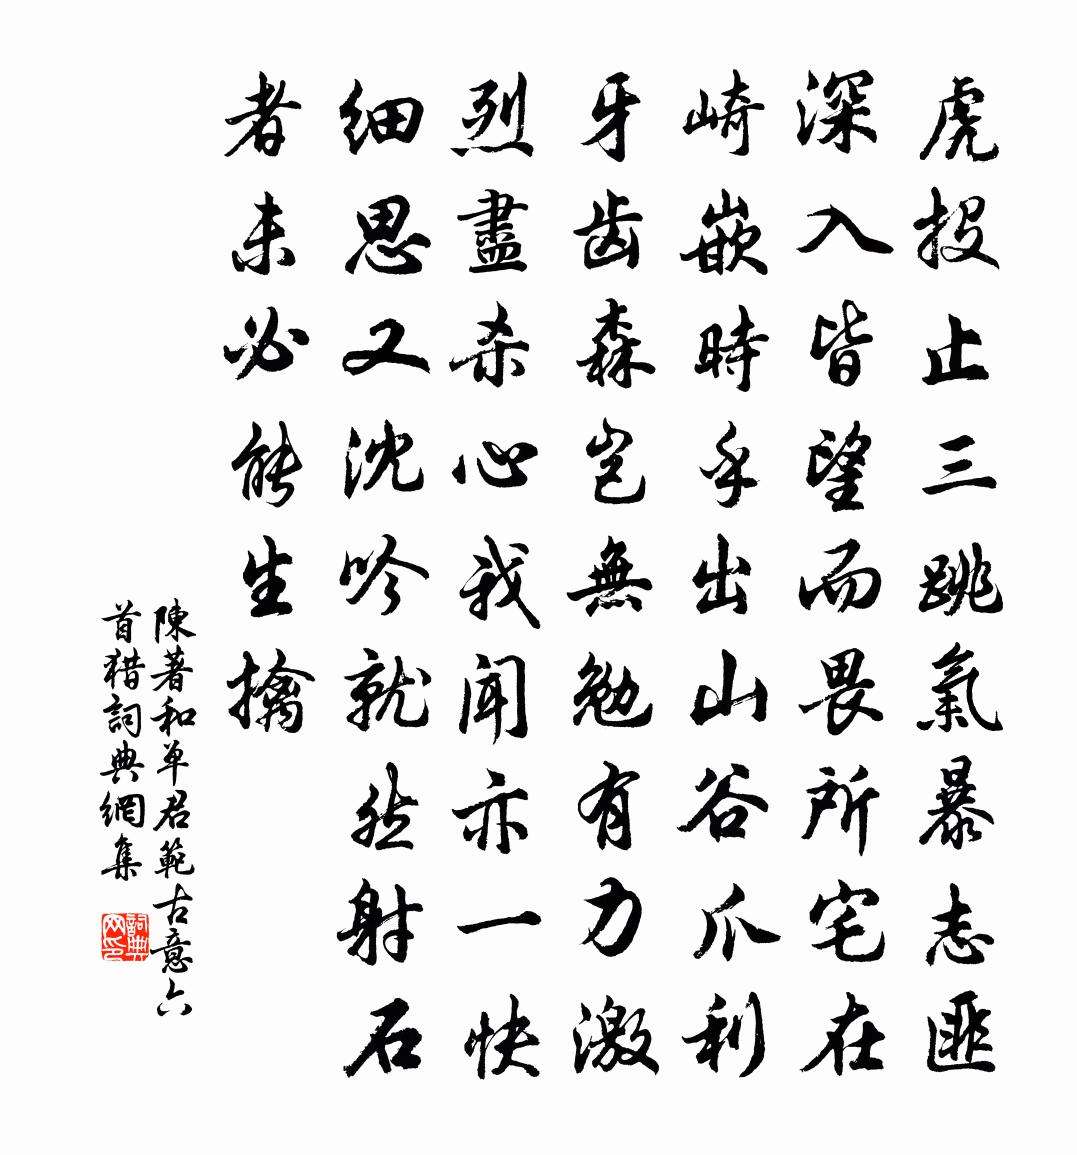 虎投止三跳氣暴志匪
深入皆望而畏所宅在
崎嵌時乎出山谷爪利
牙齿森岂無勉有力激
烈盡杀心我闻亦一快
细思又沈吟就然射石
者未必能生擒
陳著和单君範古意六
首猎詞典網集
詞典
网印